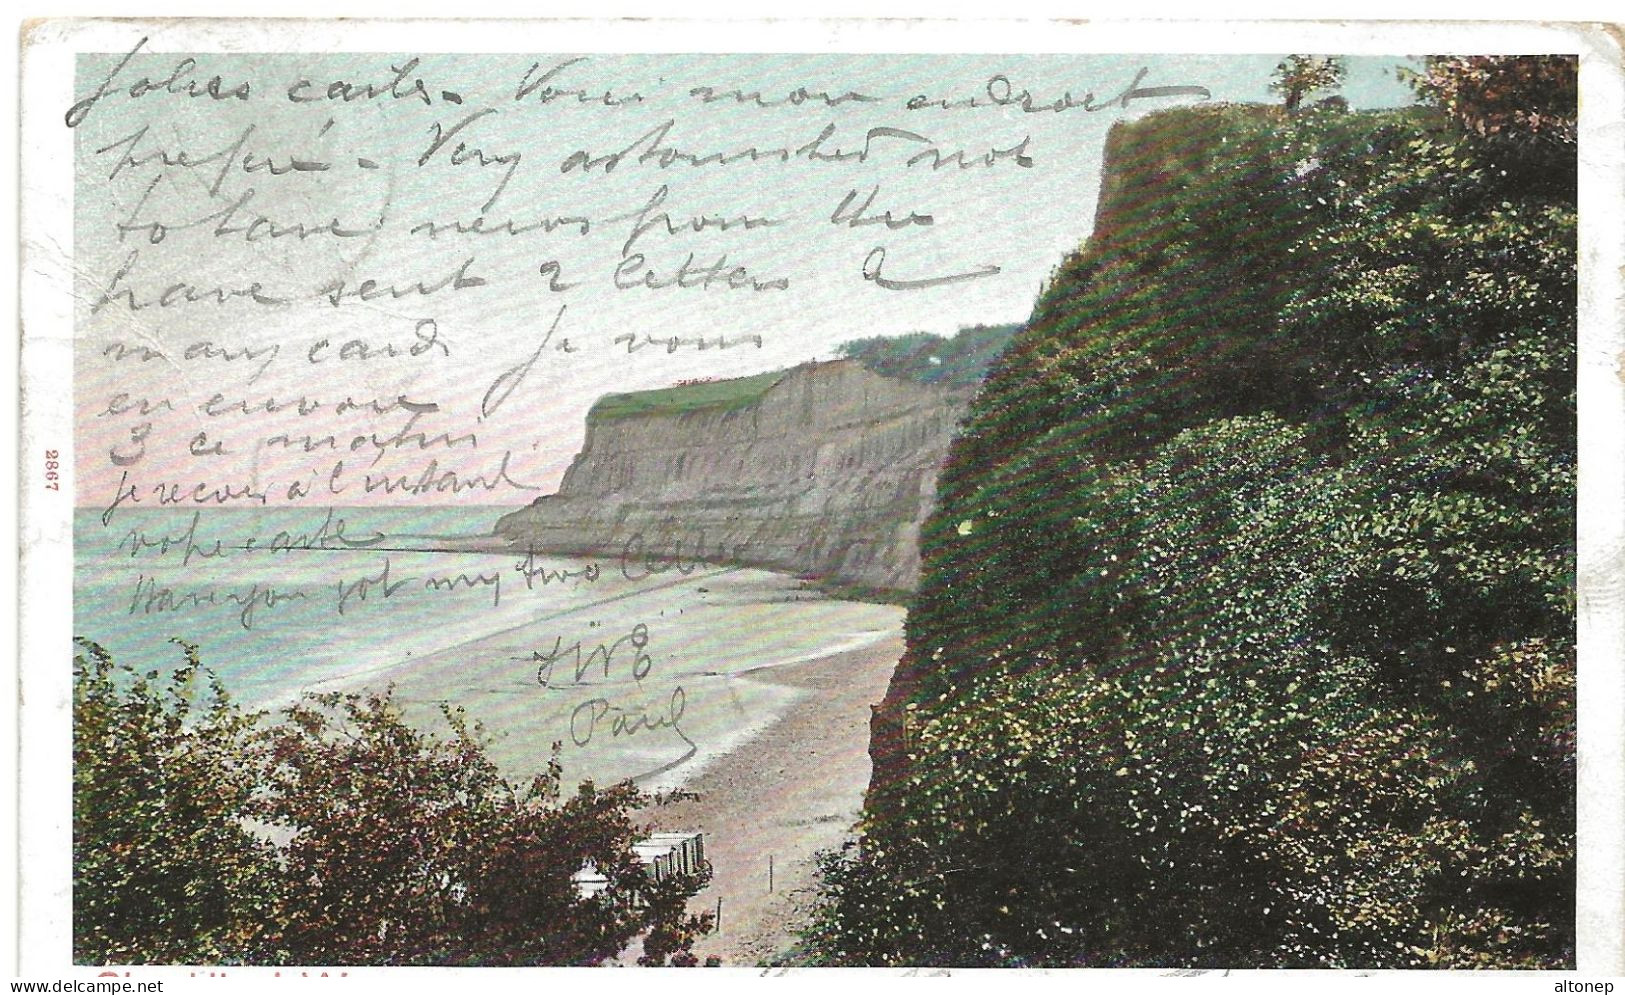 Jolies cartes - Voici mon endroit
préféré - Very astonished not
to have news from
have sent 2 letters &
many cards Je vous
en envoie
3 ce matin
je reçois à l'instant
votre carte
Have you got my two letters
Paul
2867
delcampe.net
altonep